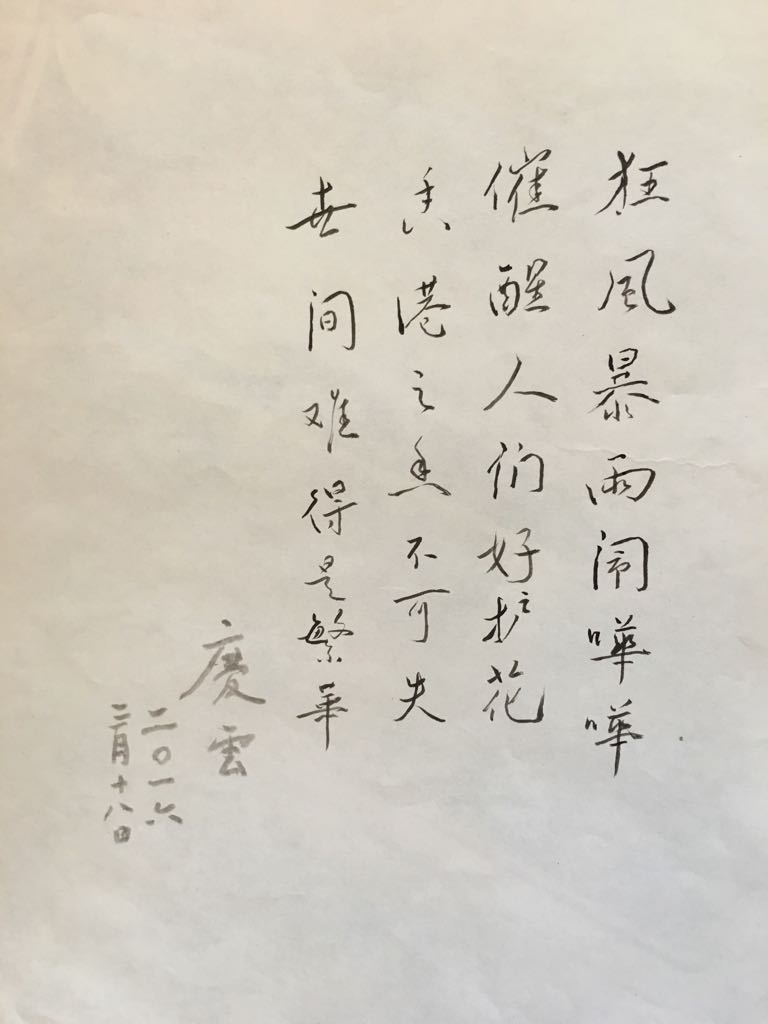 狂風暴雨闹嘩嘩
催醒人们好护花
香港之香不可失
世间难得是繁華
慶雲
二〇一六
二月十八日